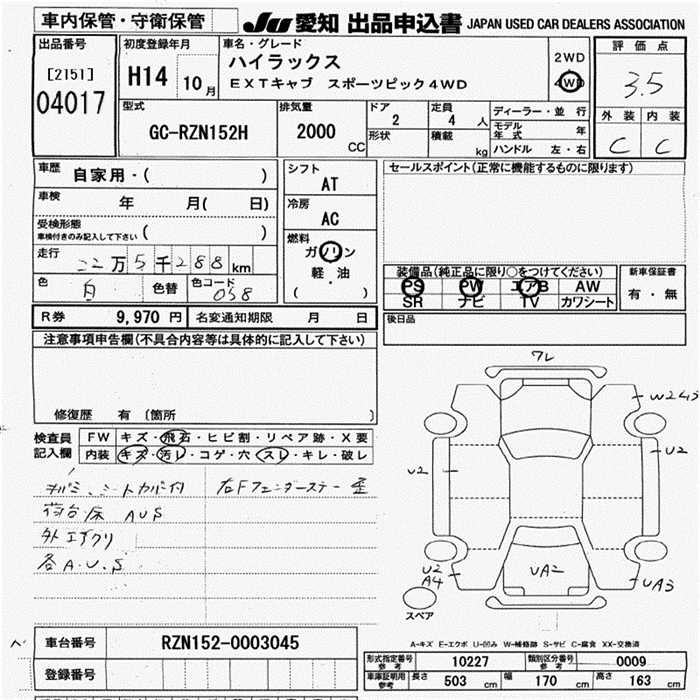 車内保管・守衛保管
JU 愛知 出品申込書 JAPAN USED CAR DEALERS ASSOCIATION
出品番号
[2151]
04017
初度登録年月
H14 10月
車名・グレード
ハイラックス
EXTキャブ スポーツピック4WD
2WD
4WD
評価点
3.5
外装 内装
C C
型式
GC-RZN152H
排気量
2000 CC
ドア
2
形状
定員
4 人
積載
kg
ディーラー・並 行
モデル年式 年
ハンドル 左・右
車歴
自家用・( )
車検
年 月( 日)
受検形態
車検付きのみ記入して下さい ( )
走行
22万5千288km
色
白
色替
色コード
058
シフト
AT
冷房
AC
燃料
ガソリン
軽・油
( ・ )
セールスポイント(正常に機能するものに限ります)
装備品(純正品に限り○をつけてください)
PS PW エアB AW
SR ナビ TV カワシート
新車保証書
有・無
R券 9,970 円 名変通知期限 月 日
後日品
注意事項申告欄(不具合内容等は具体的に記入して下さい)
修復歴 有 〔箇所 〕
検査員
記入欄
FW キズ・飛石・ヒビ割・リペア跡・X要
内装 キズ・汚レ・コゲ・穴・スレ・キレ・破レ
シートカバー付
右Fフェンダーステー歪
荷台床 AUS
外エグリ
各A.U.S
ワレ
W2
U2
U2
U2
A4
UA2
UA3
スペア
A-キズ E-エクボ U-凹み W-補修跡 S-サビ C-腐食 XX-交換済
車台番号 RZN152-0003045
登録番号
形式指定番号
参考
10227
類別区分番号
参考
0009
車庫証明用
参考
長さ 503 cm 幅 170 cm 高さ 163 cm